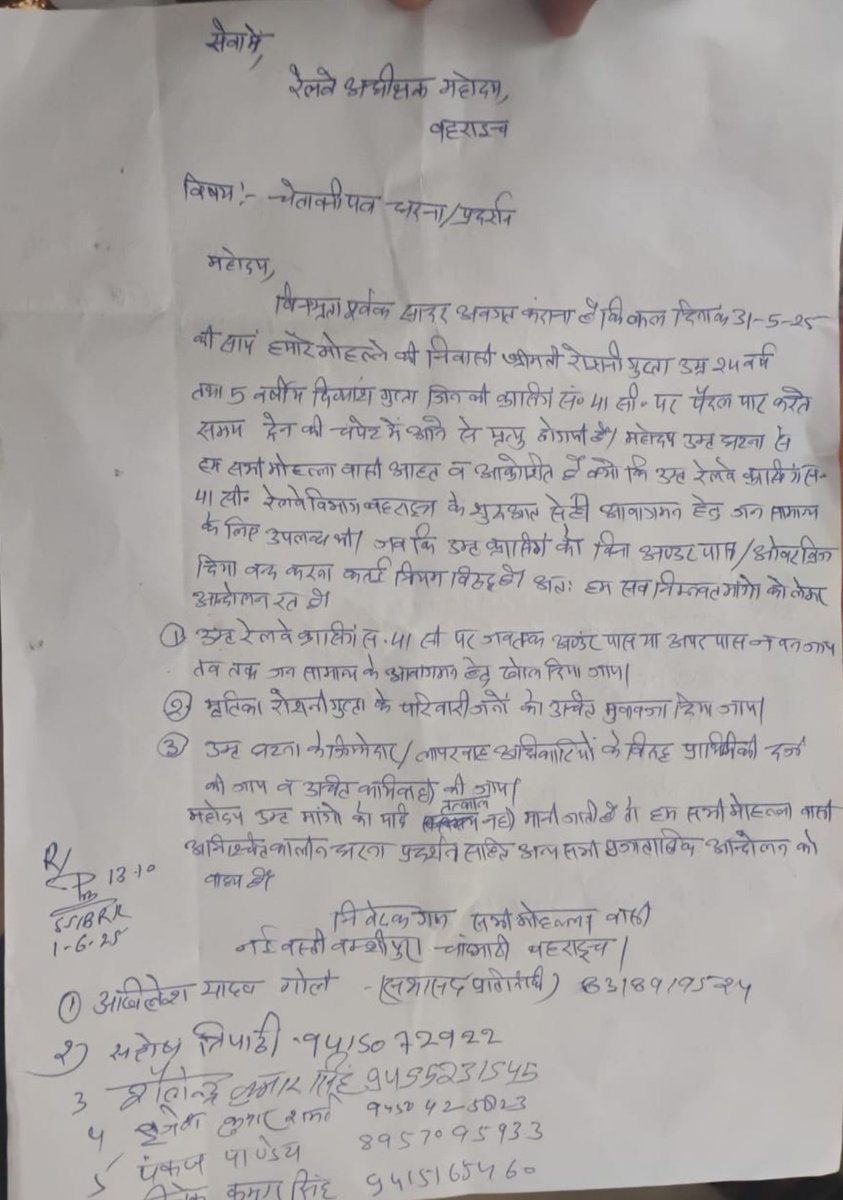 सेवा में,
रेलवे अधीक्षक महोदय,
बहराइच
विषय:- चेतावनी पत्र धरना/प्रदर्शन
महोदय,
विनम्रता पूर्वक सादर अवगत कराना है कि कल दिनांक 31-5-25
की सायं हमारे मोहल्ले की निवासी श्रीमती रोशनी गुप्ता उम्र 24 वर्ष
तथा 5 वर्षीय दिव्यांश गुप्ता जिनकी क्रासिंग सं० 41 सी० पर पैदल पार करते
समय ट्रेन की चपेट में आने से मृत्यु हो गयी है। महोदय उक्त घटना से
हम सभी मोहल्ला वासी आहत व आक्रोशित है क्यो कि उक्त रेलवे क्रासिंग सं-
41 सी० रेलवे विभाग बहराइच के शुरुआत से ही आवागमन हेतु जन सामान्य
के लिए उपलब्ध थी। जब कि उक्त क्रासिंग को बिना अण्डर पास / ओवर ब्रिज
दिया बन्द करना कतई नियम विरुद्ध है। अतः हम सब निम्नवत मांगो को लेकर
आन्दोलन रत है।
① उक्त रेलवे क्रासिंग सं. 41 सी पर जबतक अण्डर पास या अपर पास न बन जाय
तब तक जन सामान्य के आवागमन हेतु खोल दिया जाय।
② मृतिका रोशनी गुप्ता के परिवारीजनों को उचित मुवावजा दिया जाय।
③ उक्त घटना के जिम्मेदार / लापरवाह अधिकारियों के विरुद्ध प्राथमिकी दर्ज
की जाय व उचित कार्यवाही की जाय।
महोदय उक्त मांगो को यदि तत्काल नही मानी जाती है तो हम सभी मोहल्ला वासी
अनिश्चित कालीन धरना प्रदर्शन सहित अन्य सभी प्रजातांत्रिक आन्दोलन को
बाध्य है।
R/
13.10
SS/BRK
1-6-25
निवेदक गण सभी मोहल्ला वासी
नई बस्ती बक्शीपुरा चांदमारी बहराइच।
① अखिलेश यादव गोले - (सभासद प्रतिनिधी) 6318919524
2) सन्तोष त्रिपाठी - 9415072922
3 शैलेन्द्र कुमार सिंह 9455231545
4 बृजेश कुमार शर्मा
5 पंकज पाण्डेय 8957095933
कुमार सिंह 9415165460